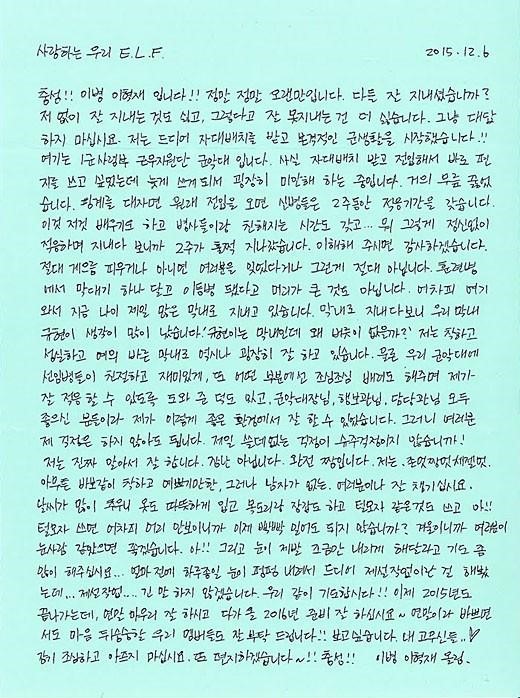 사랑하는 우리 E.L.F. 2015.12.6
충성!! 이병 이혁재 입니다!! 정말 정말 오랜만입니다. 다들 잘 지내셨습니까?
저 없이 잘 지내는 것도 싫고, 그렇다고 잘 못지내는 건 더 싫습니다. 그냥 대답
하지 마십시요. 저는 드디어 자대배치를 받고 본격적인 군생활을 시작했습니다.!!
여기는 1군사령부 근무지원단 군악대 입니다. 사실 자대배치 받고 전입해서 바로 편
지를 쓰고 싶었는데 늦게 쓰게 되서 굉장히 미안해 하는 중입니다. 거의 무릎 꿇었
습니다. 핑계를 대자면 원래 전입을 오면 신병들은 2주동안 적응기간을 갖습니다.
이것 저것 배우기도 하고 병사들이랑 친해지는 시간도 갖고... 뭐 그렇게 정신없이
적응하며 지내다 보니까 2주가 훌쩍 지나갔습니다. 이해해 주시면 감사하겠습니다.
절대 게으름 피우거나 아니면 여러분을 잊었다거나 그런게 절대 아닙니다. 훈련병
에서 막대기 하나 달고 이등병 됐다고 머리가 큰 것도 아닙니다. 어차피 여기
와서 지금 나이 제일 많은 막내로 지내고 있습니다. 막내로 지내다보니 우리 막내
규현이 생각이 많이 났습니다. '규현이는 막내인데 왜 버릇이 없을까?' 저는 착하고
성실하고 예의 바른 막내로 역시나 굉장히 잘 하고 있습니다. 물론 우리 군악대에
선임병들이 친절하고 재미있게, 또 어떤 부분에선 조심조심 배려도 해주며 제가
잘 적응 할 수 있도록 도와 준 덕도 있고, 군악대장님, 행보관님, 담당관님 모두
좋으신 분들이라 제가 이렇게 좋은 환경에서 잘 할 수 있었습니다. 그러니 여러분
제 걱정은 하지 않아도 됩니다. 제일 쓸데없는 걱정이 슈주걱정이지 않습니까!
저는 진짜 알아서 잘 합니다. 장난 아닙니다. 완전 짱입니다. 저는.
아무튼 바보같이 착하고 예쁘기만한, 그러나 남자가 없는. 여러분이나 잘 챙기십시요.
날씨가 많이 추우니 옷도 따뜻하게 입고 목도리랑 장갑도 하고 털모자 같은것도 쓰고 아!!
털모자 쓰면 어차피 머리 안보이니까 이제 빡빡 밀어도 되지 않습니까? 겨울이니까 여러분이
눈사람 같았으면 좋겠습니다. 아!! 그리고 눈이 제발 조금만 내리게 해달라고 기도 좀
많이 해주십시요... 얼마 전에 하루종일 눈이 펑펑 내려서 드디어 제설작업이란 걸 해봤
는데... 제설작업... 긴 말 하지 않겠습니다. 우리 같이 기도합시다!! 이제 2015년도
끝나가는데, 연말 마무리 잘 하시고 다가 올 2016년 준비 잘 하십시요~ 연말이라 바쁘면
서도 마음 뒤숭숭할 우리 멤버들도 잘 부탁 드립니다!! 보고싶습니다. 내 고무신들..♡
감기 조심하고 아프지 마십시요. 또 편지하겠습니다~!! 충성!! 이병 이혁재 올림.